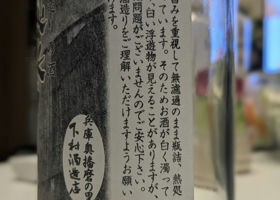 旨みを重視して無濾過のまま瓶詰、熱処
ています。そのためお酒が白く濁って
、白い浮遊物が見えることがありますが、
問題がございませんのでご安心下さい。
酒造りをご理解いただけますようお願い
げます。
兵庫奥播磨の里
下村酒造店